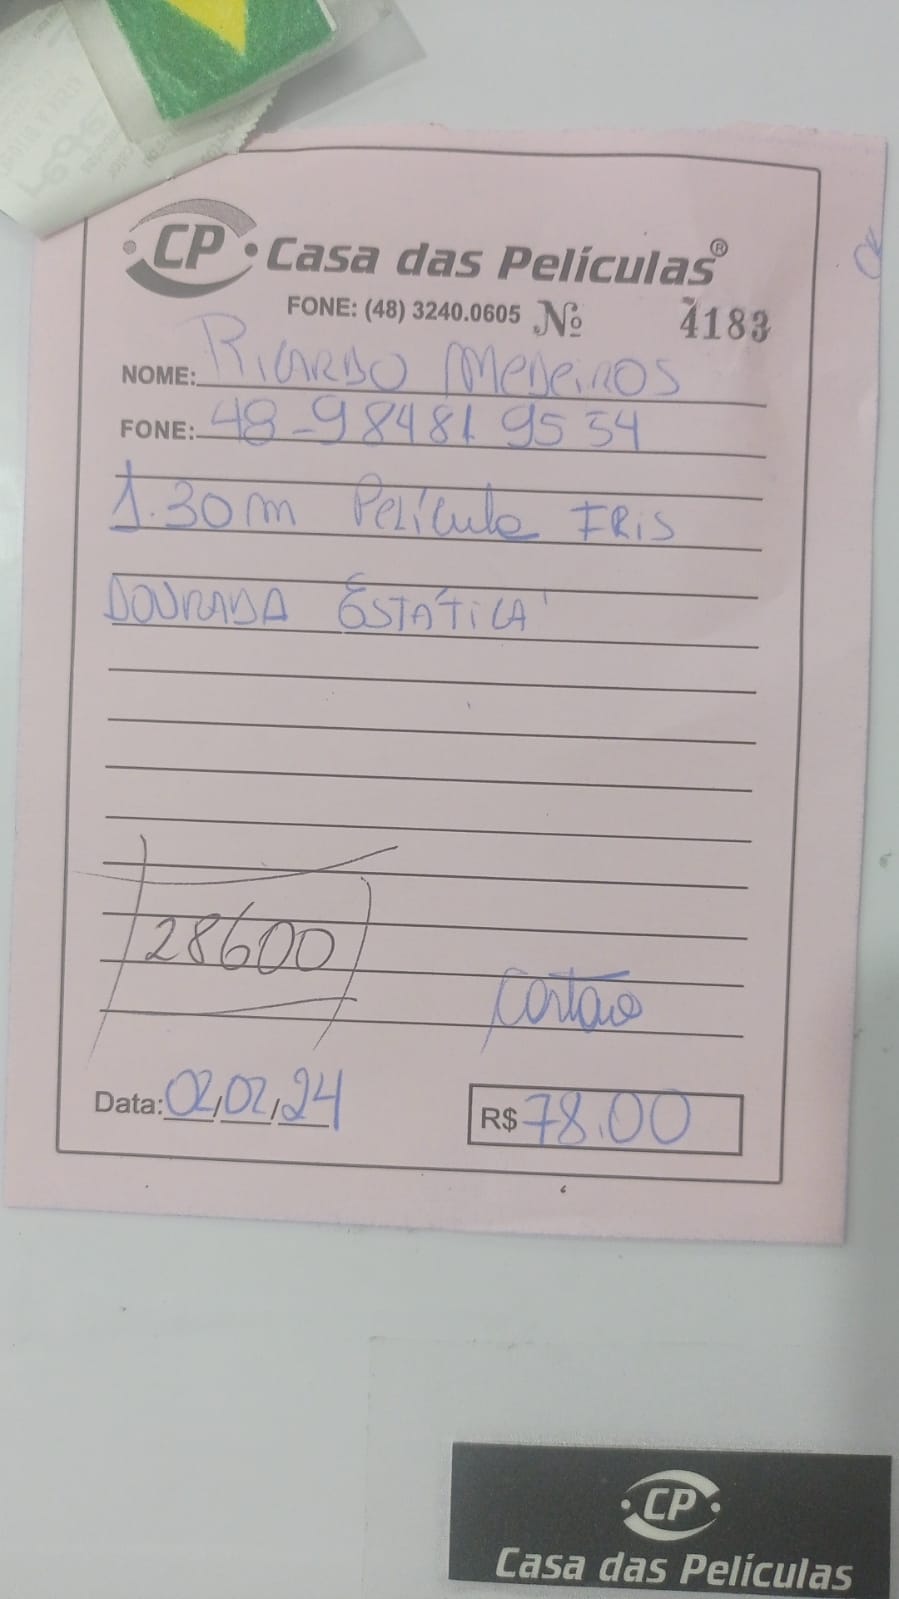 CP Casa das Películas®
FONE: (48) 3240.0605 Nº 4183
NOME: Ricardo Medeiros
FONE: 48-98481 9534
1.30m Película IRIS
DOURADA ESTÁTICA
28600
Cartão
Data: 02/02/24 R$ 78.00
CP
Casa das Películas